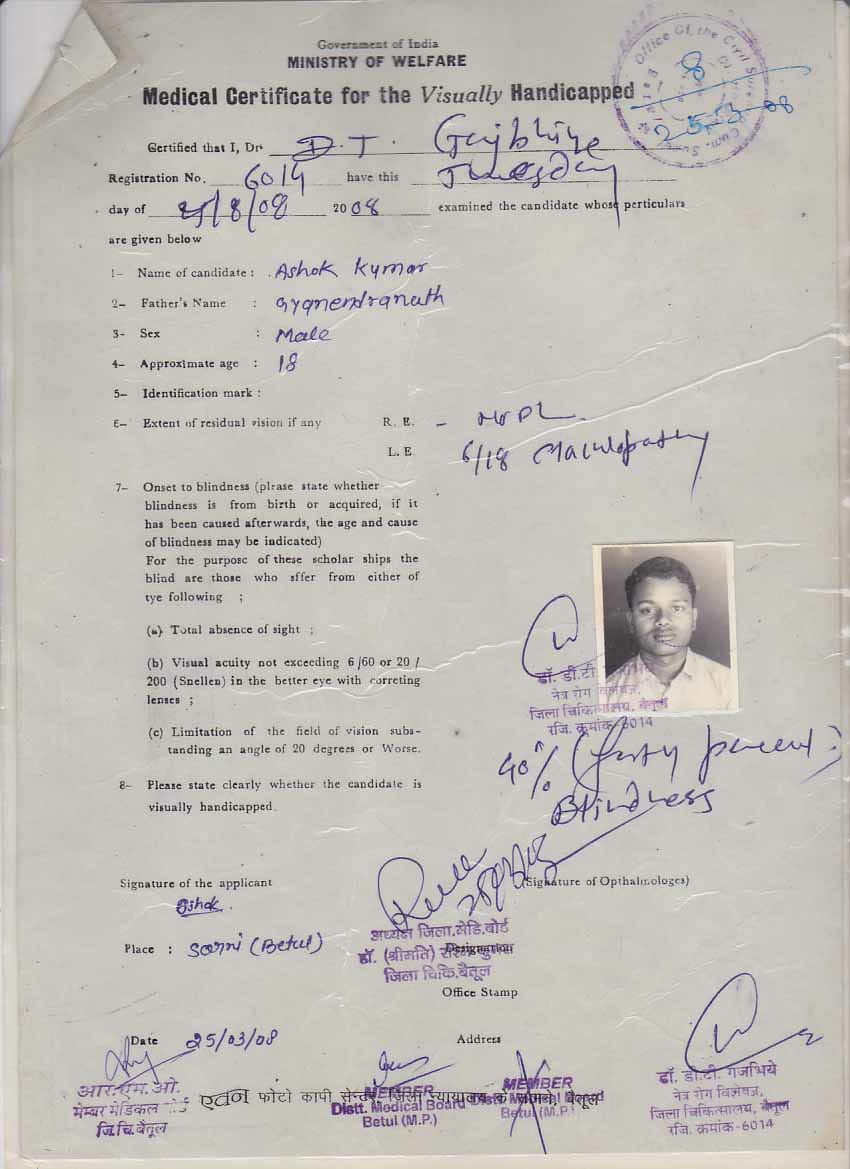 Government of India
MINISTRY OF WELFARE
Medical Certificate for the Visually Handicapped
Office Of, the Civil
8
25-3-08
Certified that I, Dr. D.T. Gajbhiye
Registration No. 6014 have this Tuesday
day of /8/08 20 08 examined the candidate whose perticulars
are given below
1- Name of candidate : Ashok Kumar
2- Father's Name : Gyanendranath
3- Sex : Male
4- Approximate age : 18
5- Identification mark :
6- Extent of residual vision if any R. E. -
L. E. 6/18 Maculopathy
7- Onset to blindness (please state whether
blindness is from birth or acquired, if it
has been caused afterwards, the age and cause
of blindness may be indicated)
For the purpose of these scholar ships the
blind are those who sffer from either of
tye following ;
(a) Total absence of sight ;
(b) Visual acuity not exceeding 6/60 or 20/
200 (Snellen) in the better eye with correting
lenses ;
(c) Limitation of the field of vision subs-
tanding an angle of 20 degrees or Worse.
डॉ. डी.टी.
नेत्र रोग विशेषज्ञ,
जिला चिकित्सालय, बैतूल
रजि. क्रमांक-6014
40% (forty percent)
Blindness
8- Please state clearly whether the candidate is
visually handicapped.
Signature of the applicant
Ashok.
(Signature of Opthalmologes)
Place : Sarni (Betul)
अध्यक्ष जिला.मेडि.बोर्ड
डॉ. (श्रीमति)
Designation
जिला चिकि.बैतूल
Office Stamp
Date 25/03/08
Address
आर.एम.ओ.
मेम्बर मेडिकल बोर्ड
जि.चि.बैतूल
एवन फोटो कापी सेन्टर, जिला न्यायालय के सामने, बैतूल
MEMBER
Distt. Medical Board
Betul (M.P.)
MEMBER
Distt. Medical Board
Betul (M.P.)
डॉ. डी.टी. गजभिये
नेत्र रोग विशेषज्ञ,
जिला चिकित्सालय, बैतूल
रजि. क्रमांक-6014